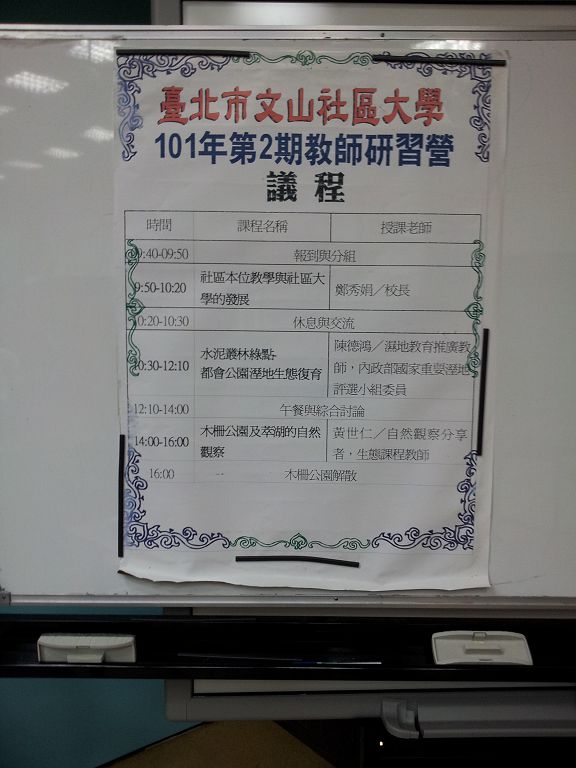 臺北市文山社區大學
101年第2期教師研習營
議程
時間 課程名稱 授課老師
9:40-09:50 報到與分組
9:50-10:20 社區本位教學與社區大學的發展 鄭秀娟／校長
10:20-10:30 休息與交流
10:30-12:10 水泥叢林綠點-都會公園溼地生態復育 陳德鴻／濕地教育推廣教師，內政部國家重要溼地評選小組委員
12:10-14:00 午餐與綜合討論
14:00-16:00 木柵公園及萃湖的自然觀察 黃世仁／自然觀察分享者，生態課程教師
16:00 -- 木柵公園解散